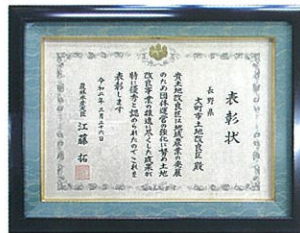 表彰状
長野県
大町市土地改良区 殿
貴土地改良区は地域農業の発展
のため団体運営の強化に努め土地
改良事業の推進に尽くした成果が
特に優秀と認められたのでこれを
表彰します
令和二年三月二十六日
農林水産大臣 江藤 拓